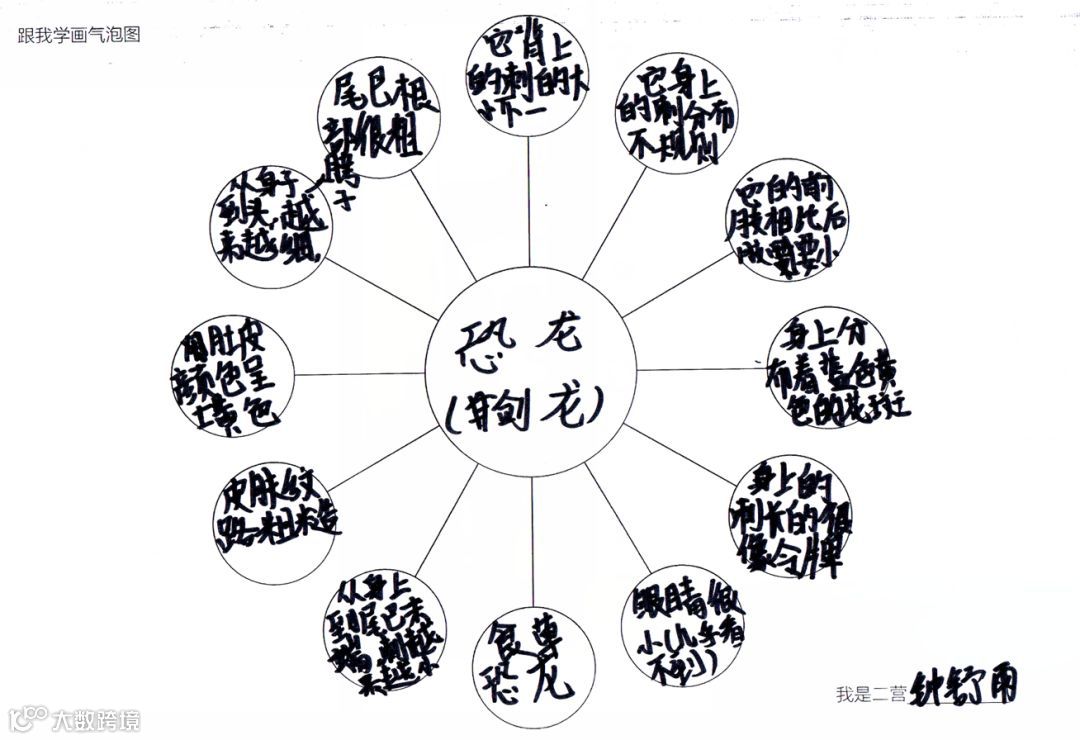 跟我学画气泡图
它背上
的刺的大
小不一
它身上
的刺分布
不规则
它的前
肢相比后
肢要小
身上分
布着蓝色黄
色的花纹
身上的
刺长的很
像令牌
眼睛很
小(几乎看
不到)
食草
恐龙
从身上
到尾巴末
端,刺越
来越小
皮肤纹
路粗糙
肚皮
颜色呈
土黄色
从身子
到头,越
来越细,
脖
子
尾巴根
部很粗
恐龙
(剑龙)
我是二营 钟舒雨
大数跨境